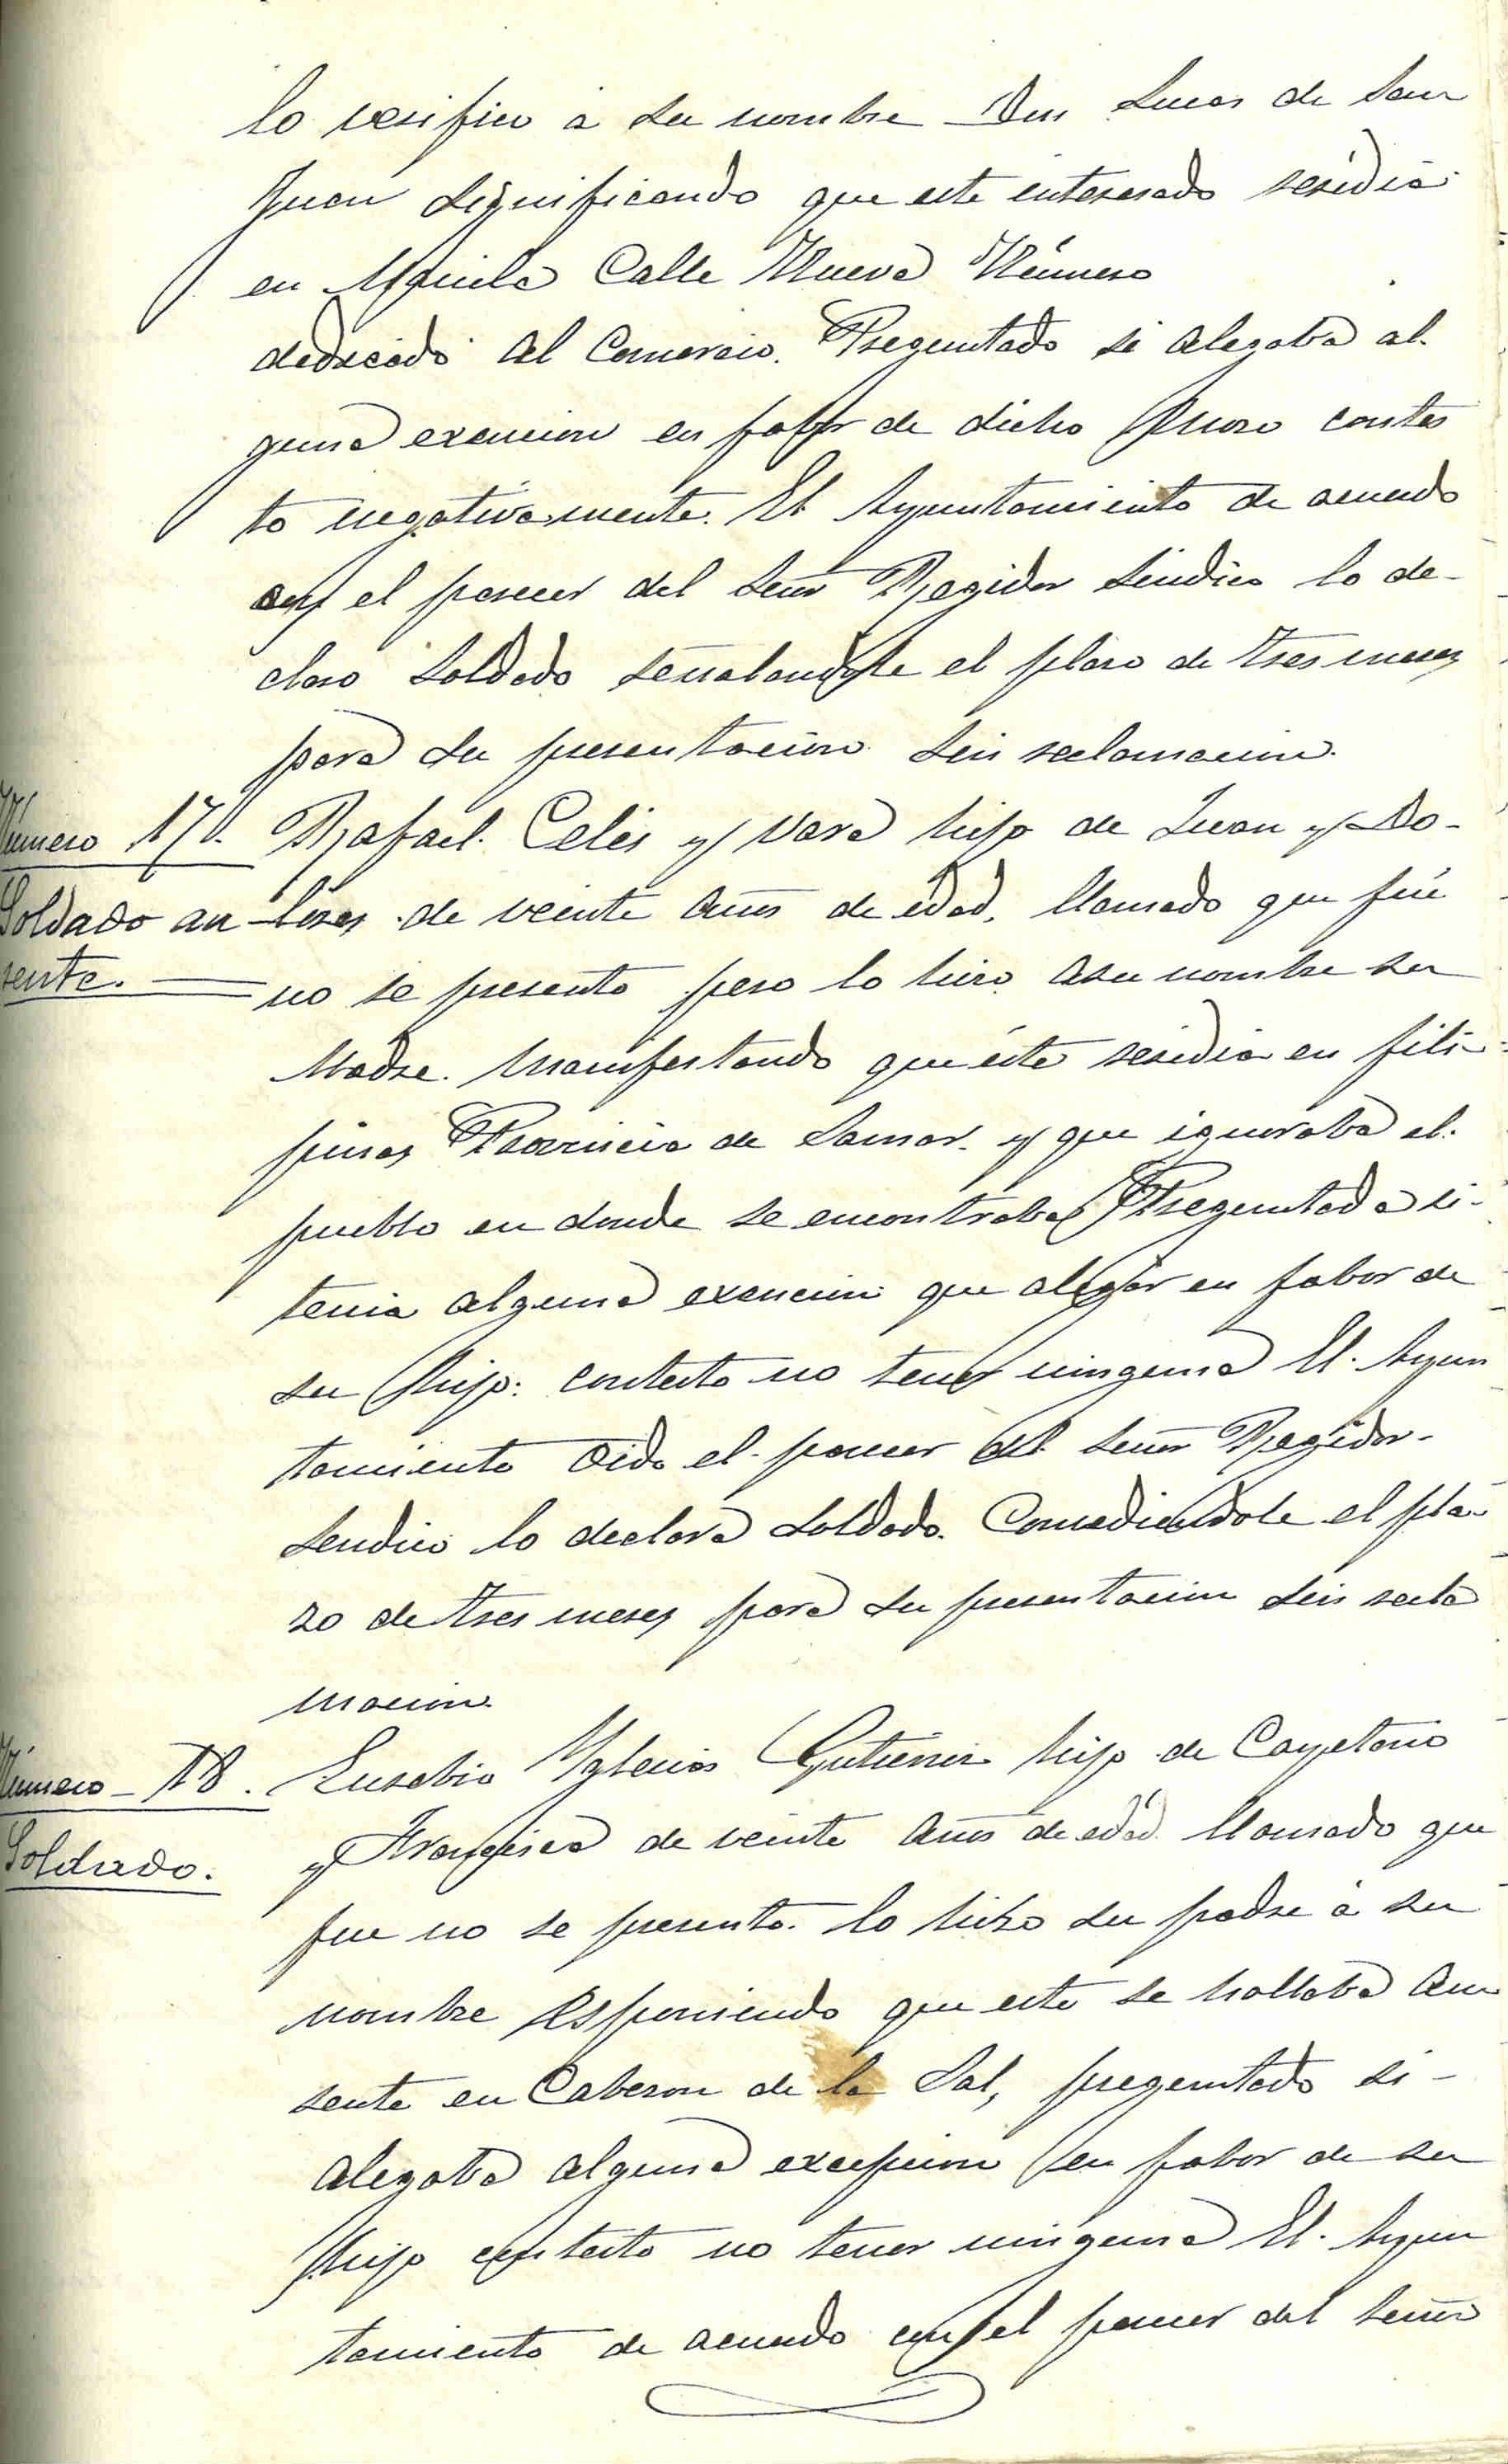 lo verifico á su nombre Don Lucas de San
Juan significando que este interesado residia
en Manila Calle Nueva Número
dedicado al Comercio. Preguntado si alegaba al-
guna exencion en fabor de dicho Mozo contes
to negativamente. El Ayuntamiento de acuerdo
con el parecer del Señor Regidor Sindico lo de-
claro Soldado señalandole el plazo de tres meses
para su presentacion sin reclamacion.
Número 17. Rafael Celis y Vara hijo de Juan y Do-
Soldado au lores de veinte años de edad, llamado que fué
sente. no se presento pero lo hizo asu nombre su
Madre. Manifestando que éste residia en fili-
pinas Provincia de Samar. y que ignoraba el
pueblo en donde se encontraba Preguntada si
tenia alguna exencion que alegar en fabor de
su hijo: contesto no tener ninguna El Ayun
tamiento Oido el parecer del Señor Regidor
Sindico lo declara Soldado. Concediendole el pla-
zo de tres meses para su presentacion sin recla
macion.
Número - 18. Eusebio Yglecias Gutierrez hijo de Cayetano
Soldado. y Francisca de veinte años de edad llamado que
fue no se presento. lo hizo su padre á su
nombre esponiendo que este se hallaba au
sente en Cabezon de la Sal, preguntado si
alegaba alguna excepcion en fabor de su
hijo contesto no tener ninguna El Ayun
tamiento de acuerdo con el parecer del Señor